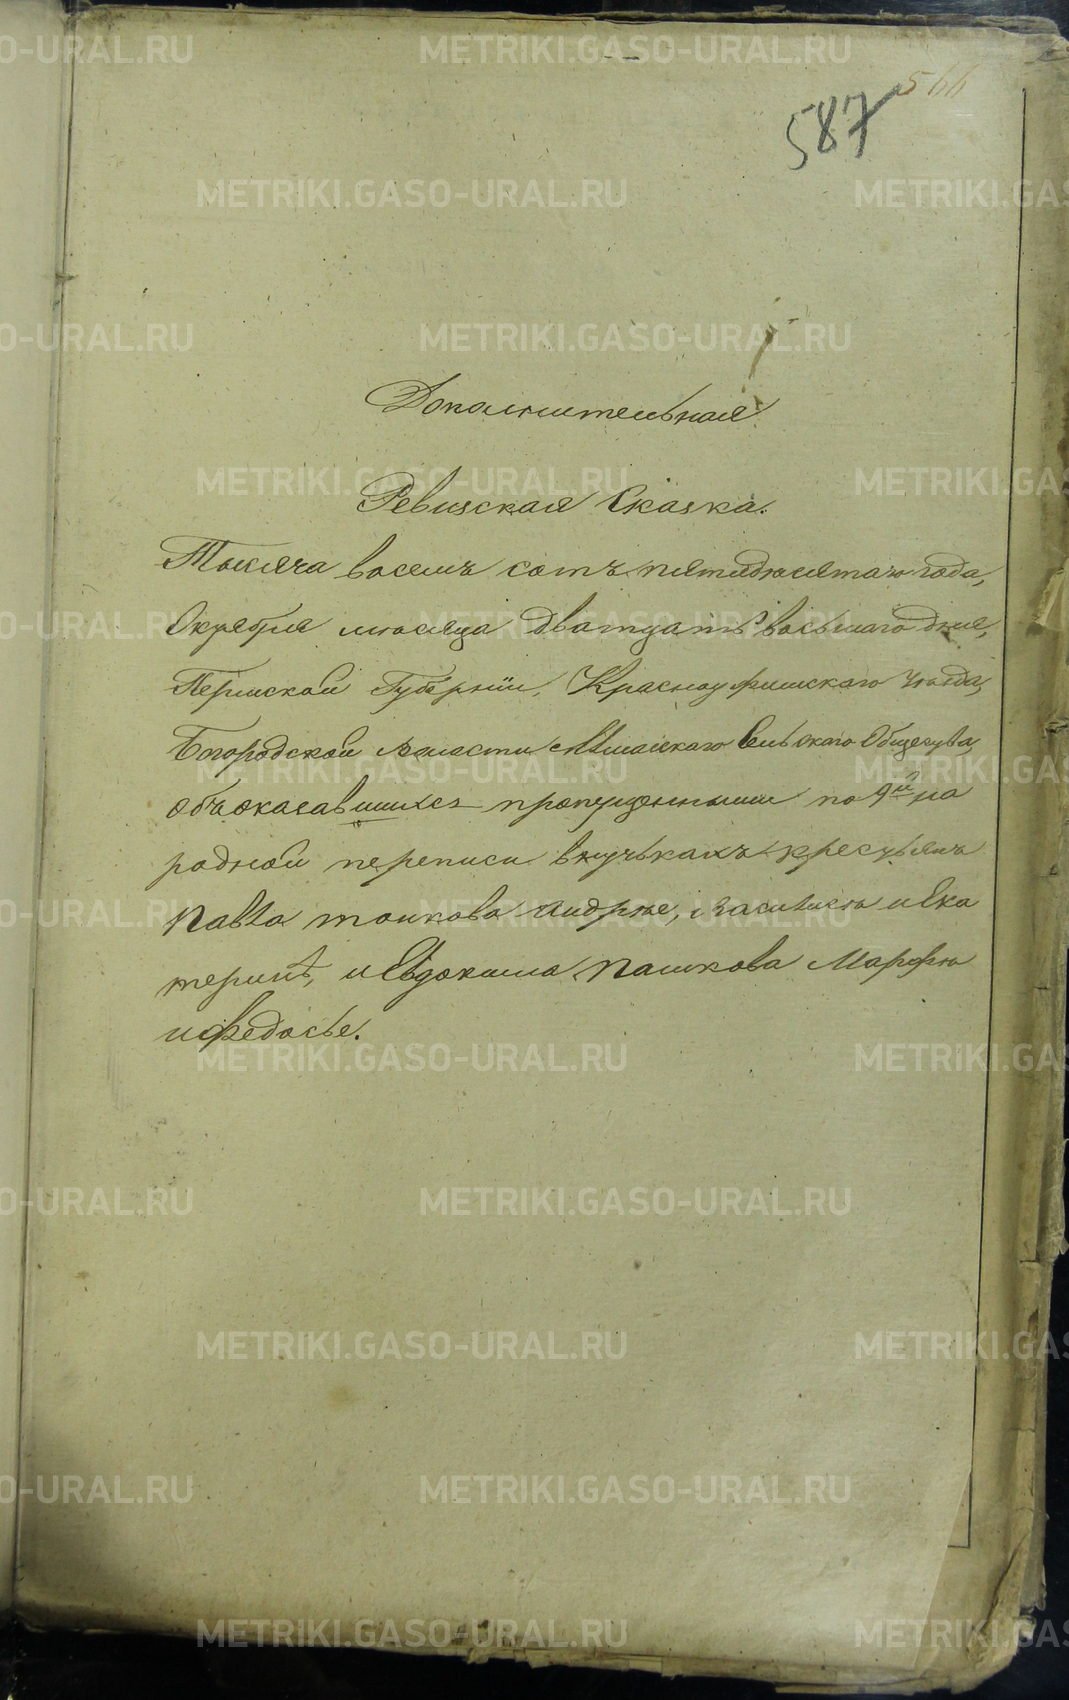 566
587
Дополнительная
Ревизская Сказка.
Тысяча восемь сотъ пятидесятаго года,
Октября месяца дватцать восьмаго дня,
Пермской Губерніи, Красноуфимскаго Уѣзда,
Богородской Волости Сельскаго Общества,
объ оказавшихся пропущенными по 9й на
родной переписи внучькахъ крестьянъ
Павла Андрѣе, Василисѣ и Ека
теринѣ, и Евдокима Пашкова Марфѣ
и Федосье.
METRIKI.GASO-URAL.RU